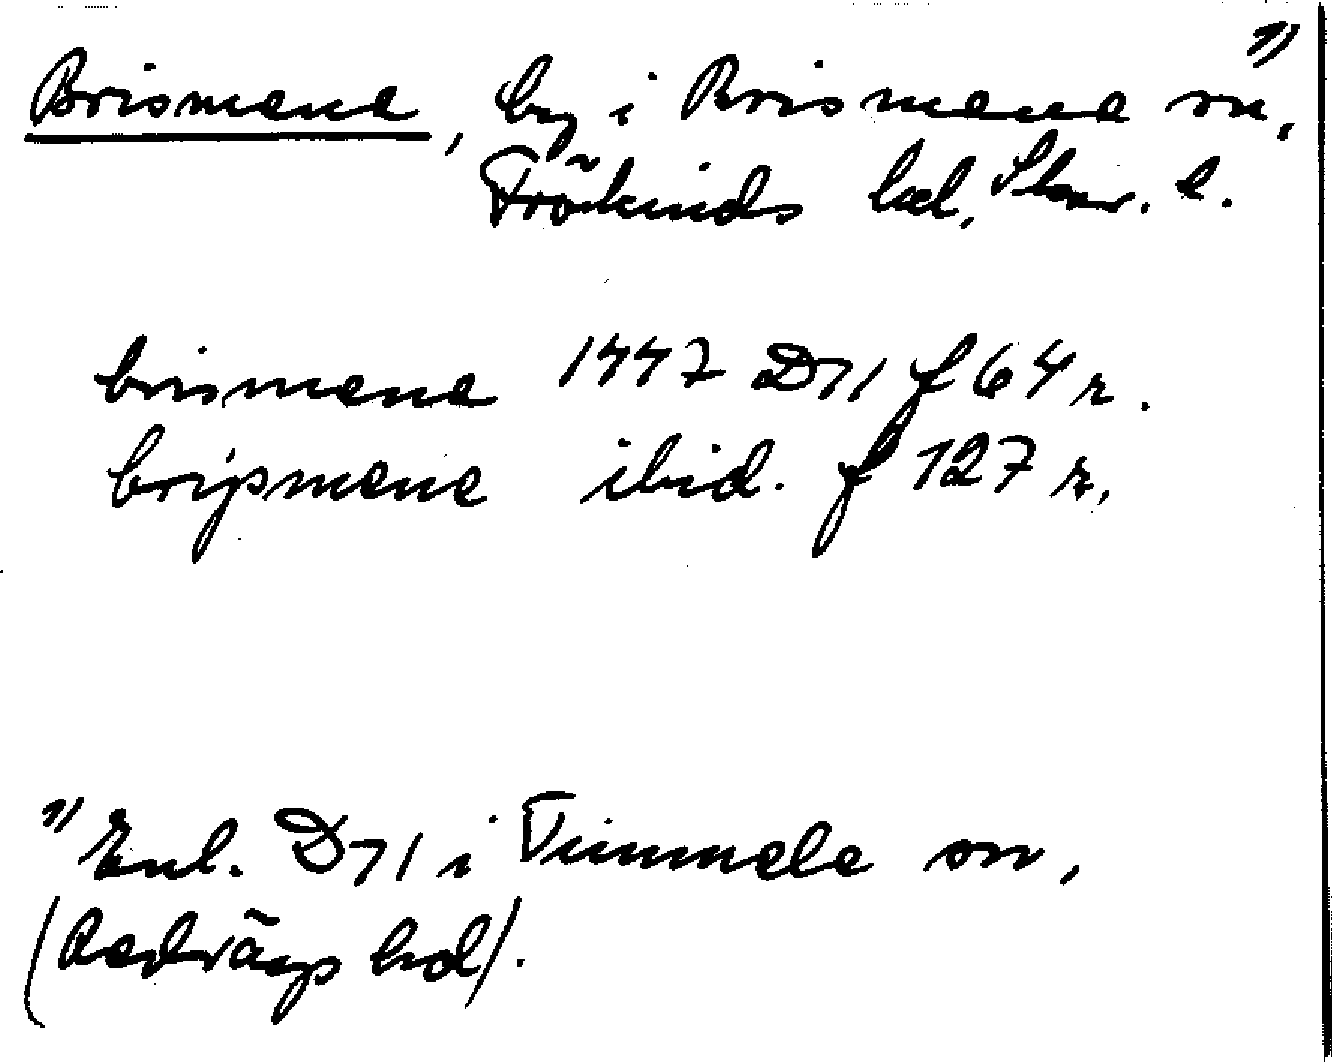 Brismene, by i Brismene sn, 1)
Frökinds hd, Skar. l.
brismene 1447 D71 f 64 r.
brijsmene ibid. f 127 r.
1) Enl. D71 i Timmele sn,
(Redvägs hd).